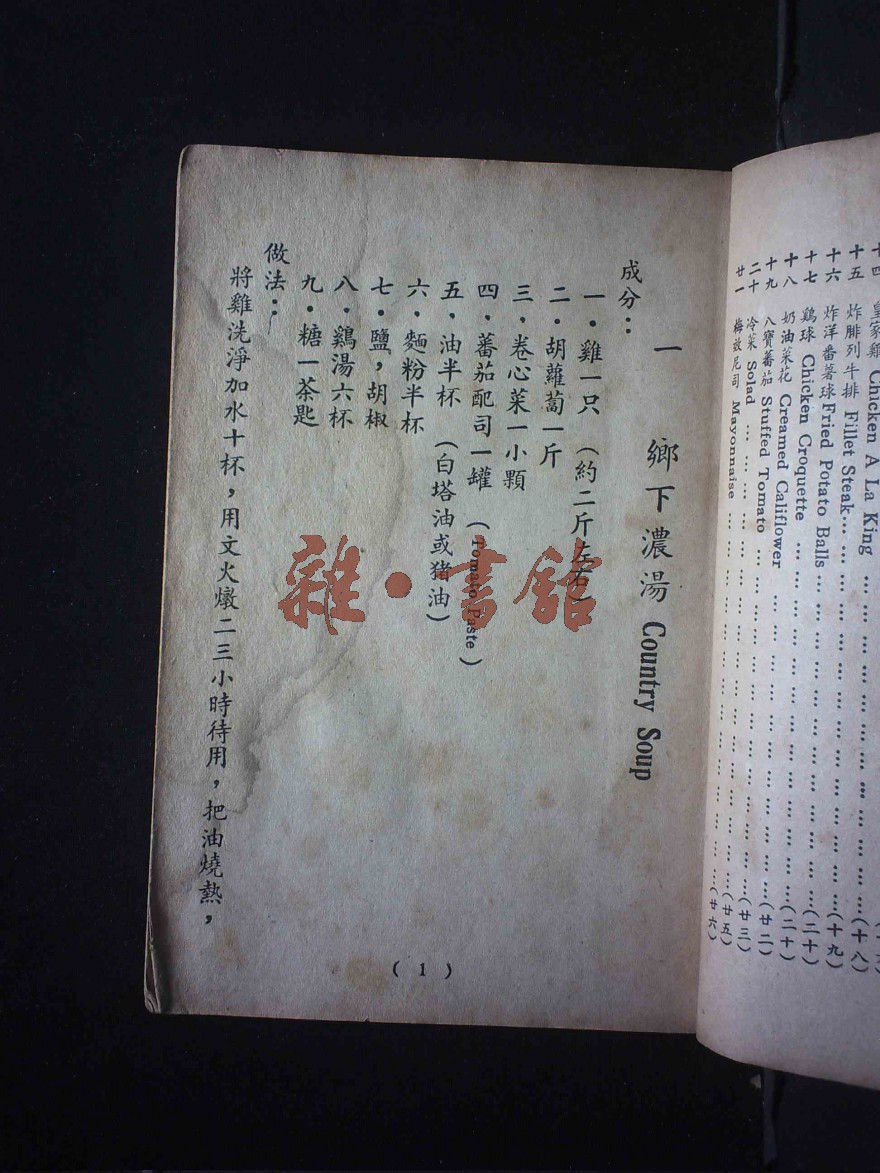 十四 皇家雞 Chicken A La King … … … … … … … … …
十五 炸腓列牛排 Fillet Steak… … … … … … … … … …(十八)
十六 炸洋番薯球 Fried Potato Balls … … … … … … … …(十九)
十七 鷄球 Chicken Croquette … … … … … … … … …(二十)
十八 奶油菜花 Creamed Califlower … … … … … … … …(二十)
十九 八寶蕃茄 Stuffed Tomato … … … … … … … … …(廿二)
二十 冷菜 Solad … … … … … … … … … … …(廿三)
廿一 梅故尼司 Mayonnaise … … … … … … … … … …(廿五)
(廿六)
一 鄉下濃湯 Country Soup
成分：
一・雞一只 (約二斤左右)
二・胡蘿蔔一斤
三、卷心菜一小顆
四、蕃茄配司一罐 (Tomato Paste)
五、油半杯 (白塔油或猪油)
六・麵粉半杯
七・鹽，胡椒
八・鷄湯六杯
九・糖一茶匙
做法：
將雞洗淨加水十杯，用文火燉二三小時待用，把油燒熱，
(1)
雜・書館